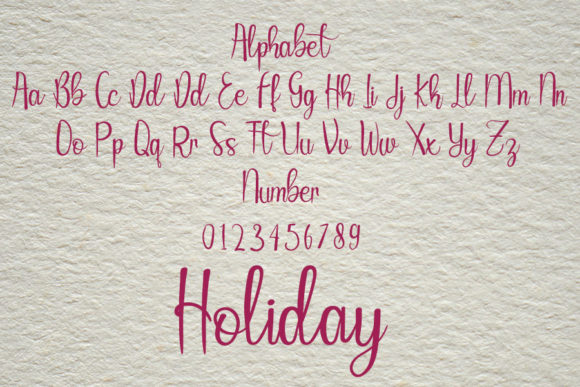 Alphabet
Aa Bb Cc Dd Dd Ee Ff Gg Hh Ii Jj Kh Ll Mm Nn
Oo Pp Qq Rr Ss Tt Uu Vv Ww Xx Yy Zz
Number
0123456789
Holiday